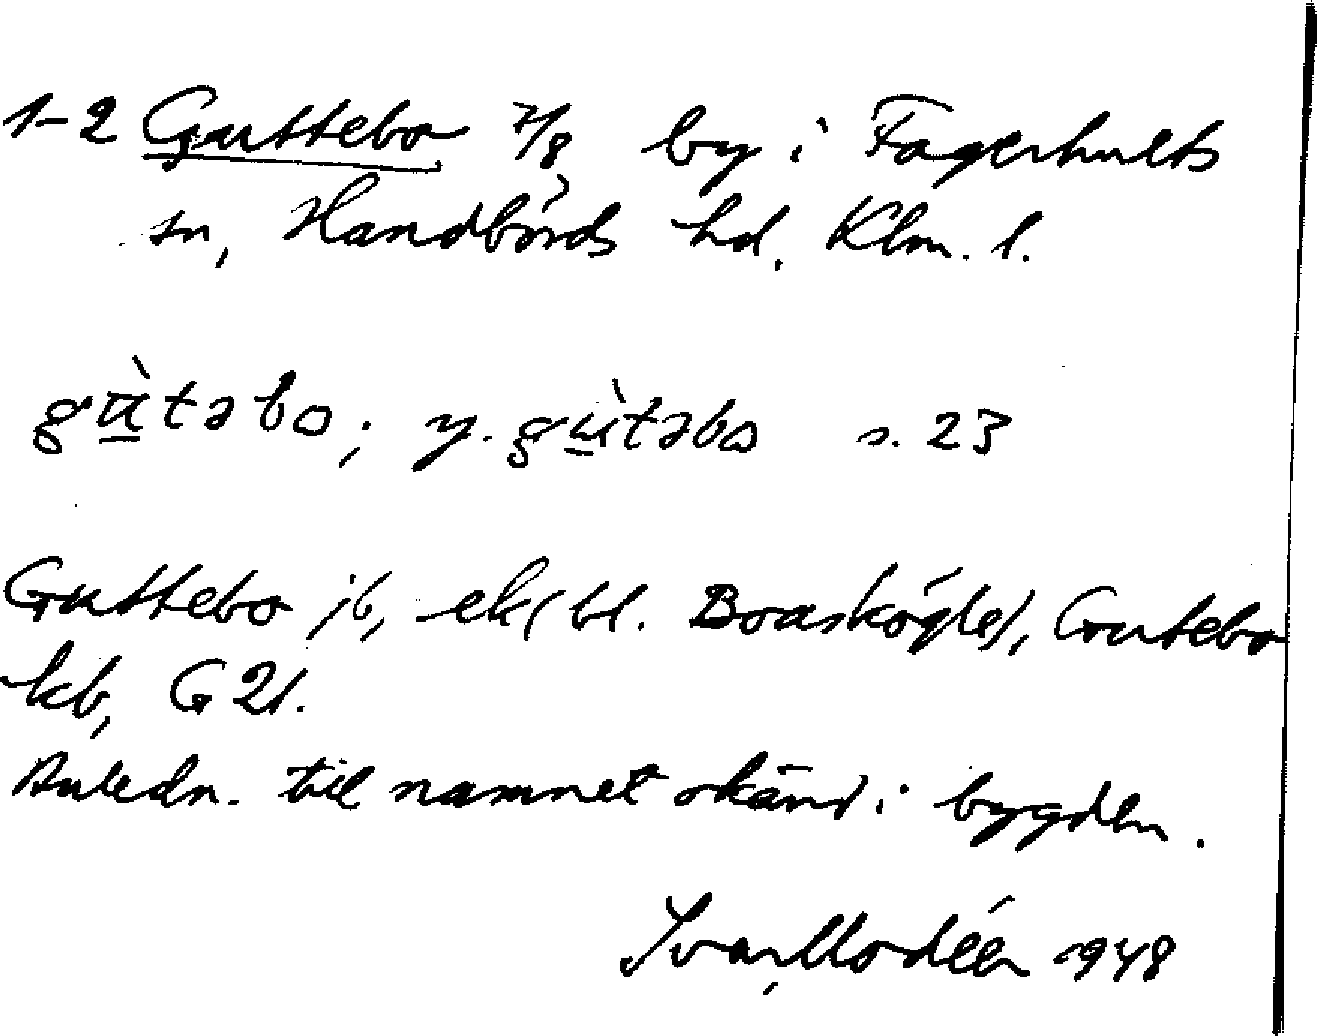 1-2 Guttebo 7/8, by i Fagerhults
sn, Handbörds hd. Klm. l.
gùtəbo; y. gùtəbo s. 23
Guttebo jb, ek (bl. Boaskögle), Gutebo
kb, G 21.
Anledn. till namnet okänd i bygden.
Ivar Modéer 1948